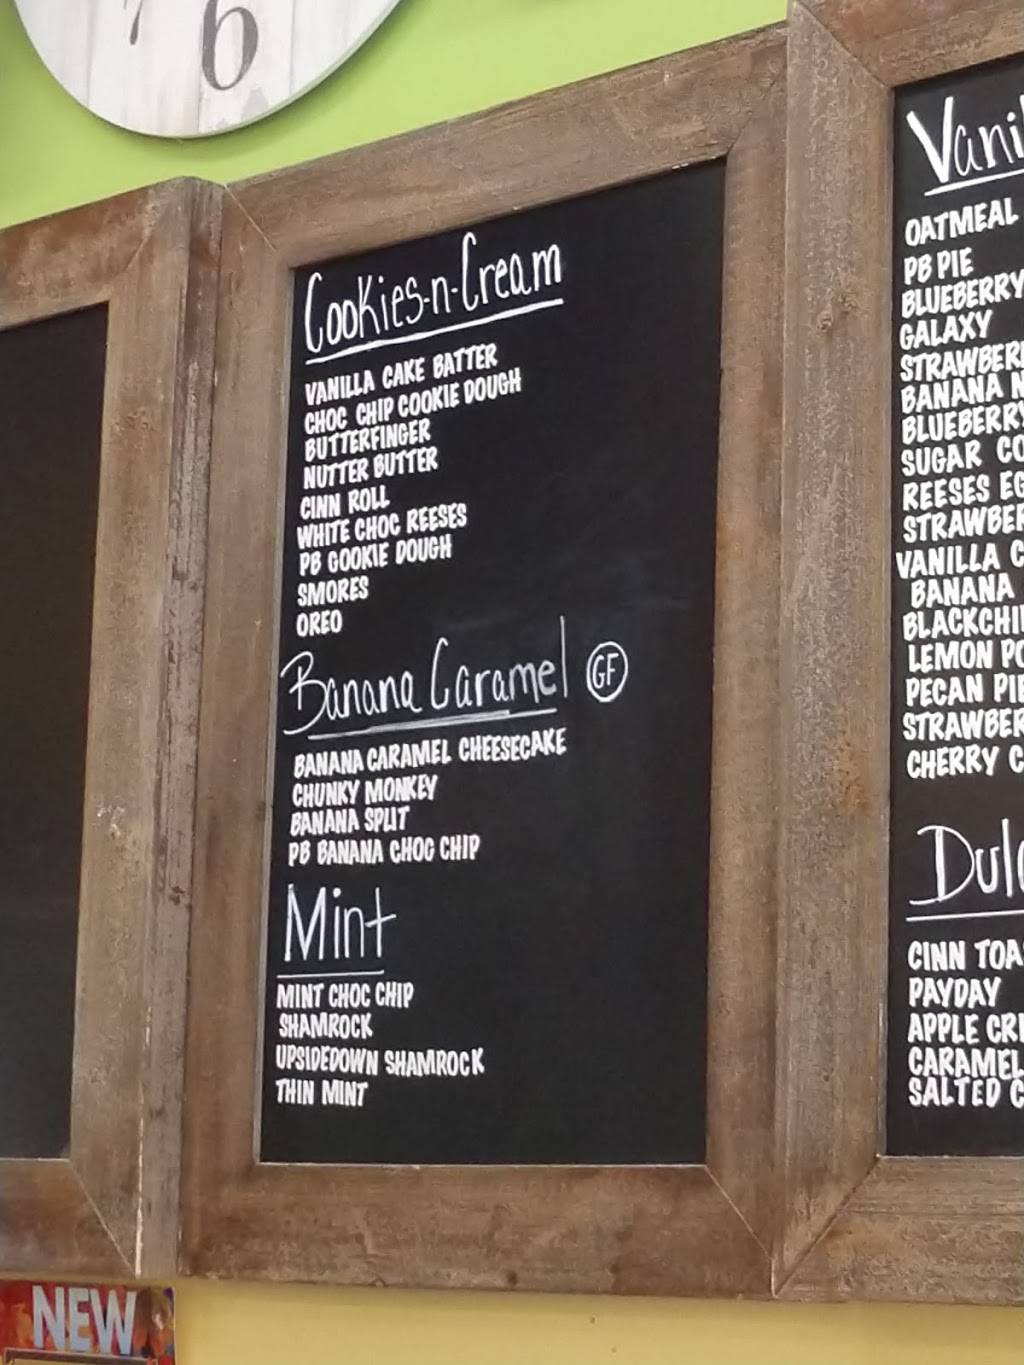 7 6
Cookies-n-Cream
VANILLA CAKE BATTER
CHOC CHIP COOKIE DOUGH
BUTTERFINGER
NUTTER BUTTER
CINN ROLL
WHITE CHOC REESES
PB COOKIE DOUGH
SMORES
OREO
Banana Caramel GF
BANANA CARAMEL CHEESECAKE
CHUNKY MONKEY
BANANA SPLIT
PB BANANA CHOC CHIP
Mint
MINT CHOC CHIP
SHAMROCK
UPSIDEDOWN SHAMROCK
THIN MINT
Vani
OATMEAL
PB PIE
BLUEBERRY
GALAXY
STRAWBER
BANANA N
BLUEBERRY
SUGAR CO
REESES EG
STRAWBER
VANILLA C
BANANA
BLACKCHI
LEMON PO
PECAN PIE
STRAWBER
CHERRY C
Dulc
CINN TOA
PAYDAY
APPLE CRI
CARAMEL
SALTED C
NEW